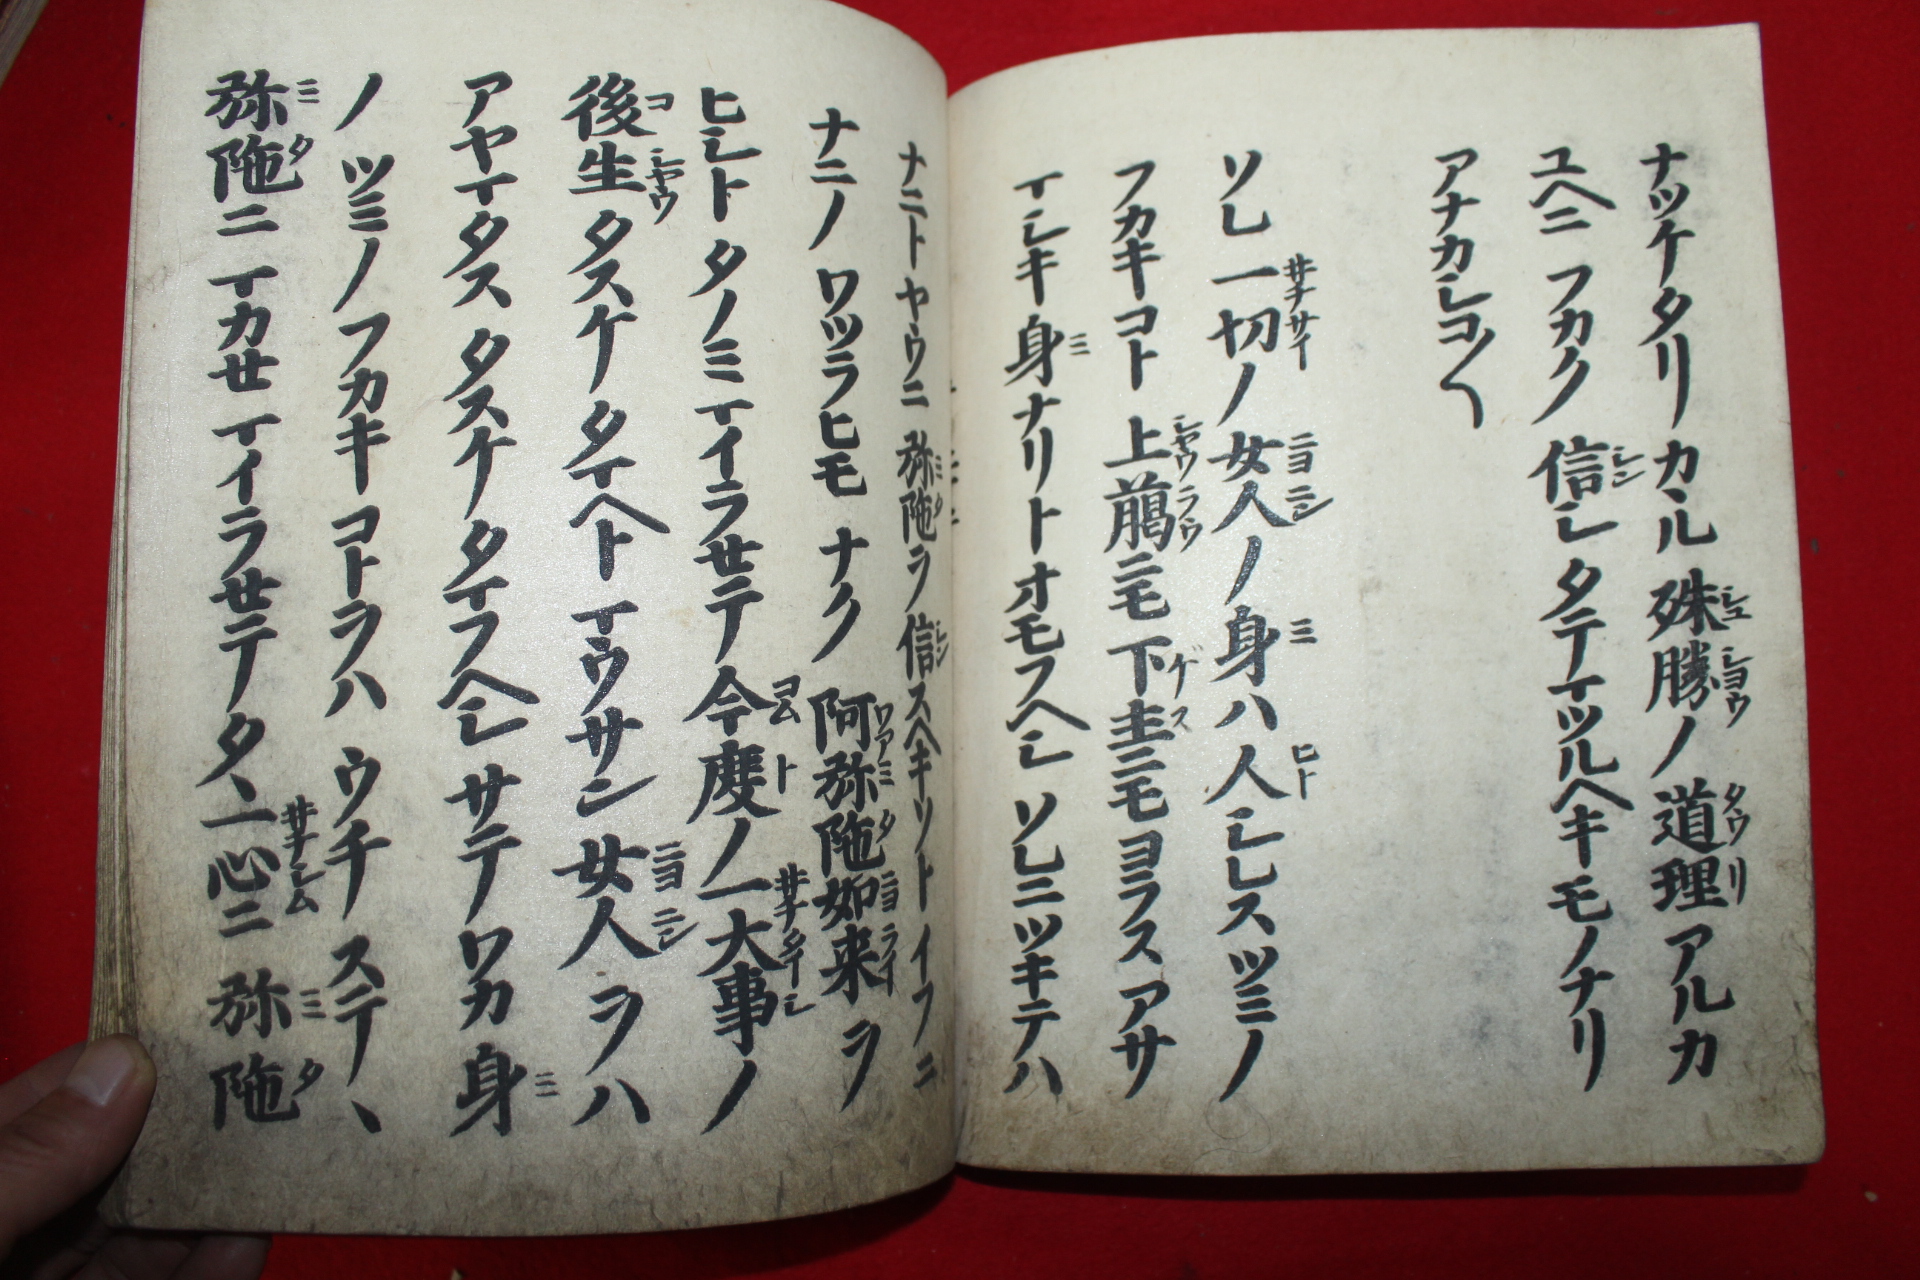 ナツケタリカヽル殊勝ノ道理アルカ
ユヘニフカク信シタテマツルヘキモノナリ
アナカシコ〳〵
ソレ一切ノ女人ノ身ハ人シレスツミノ
フカキコト上臈ニモ下主ニモヨラスアサ
マシキ身ナリトオモフヘシソレニツキテハ
ナニトヤウニ弥陀ヲ信スヘキソトイフニ
ナニノワツラヒモナク阿弥陀如来ヲ
ヒシトタノミマイラセテ今度ノ一大事ノ
後生タスケタマヘトマウサン女人ヲハ
アヤマタスタスケタマフヘシサテワカ身
ノツミノフカキコトヲハウチステヽ
弥陀ニマカセマイラセテタヽ一心ニ弥陀